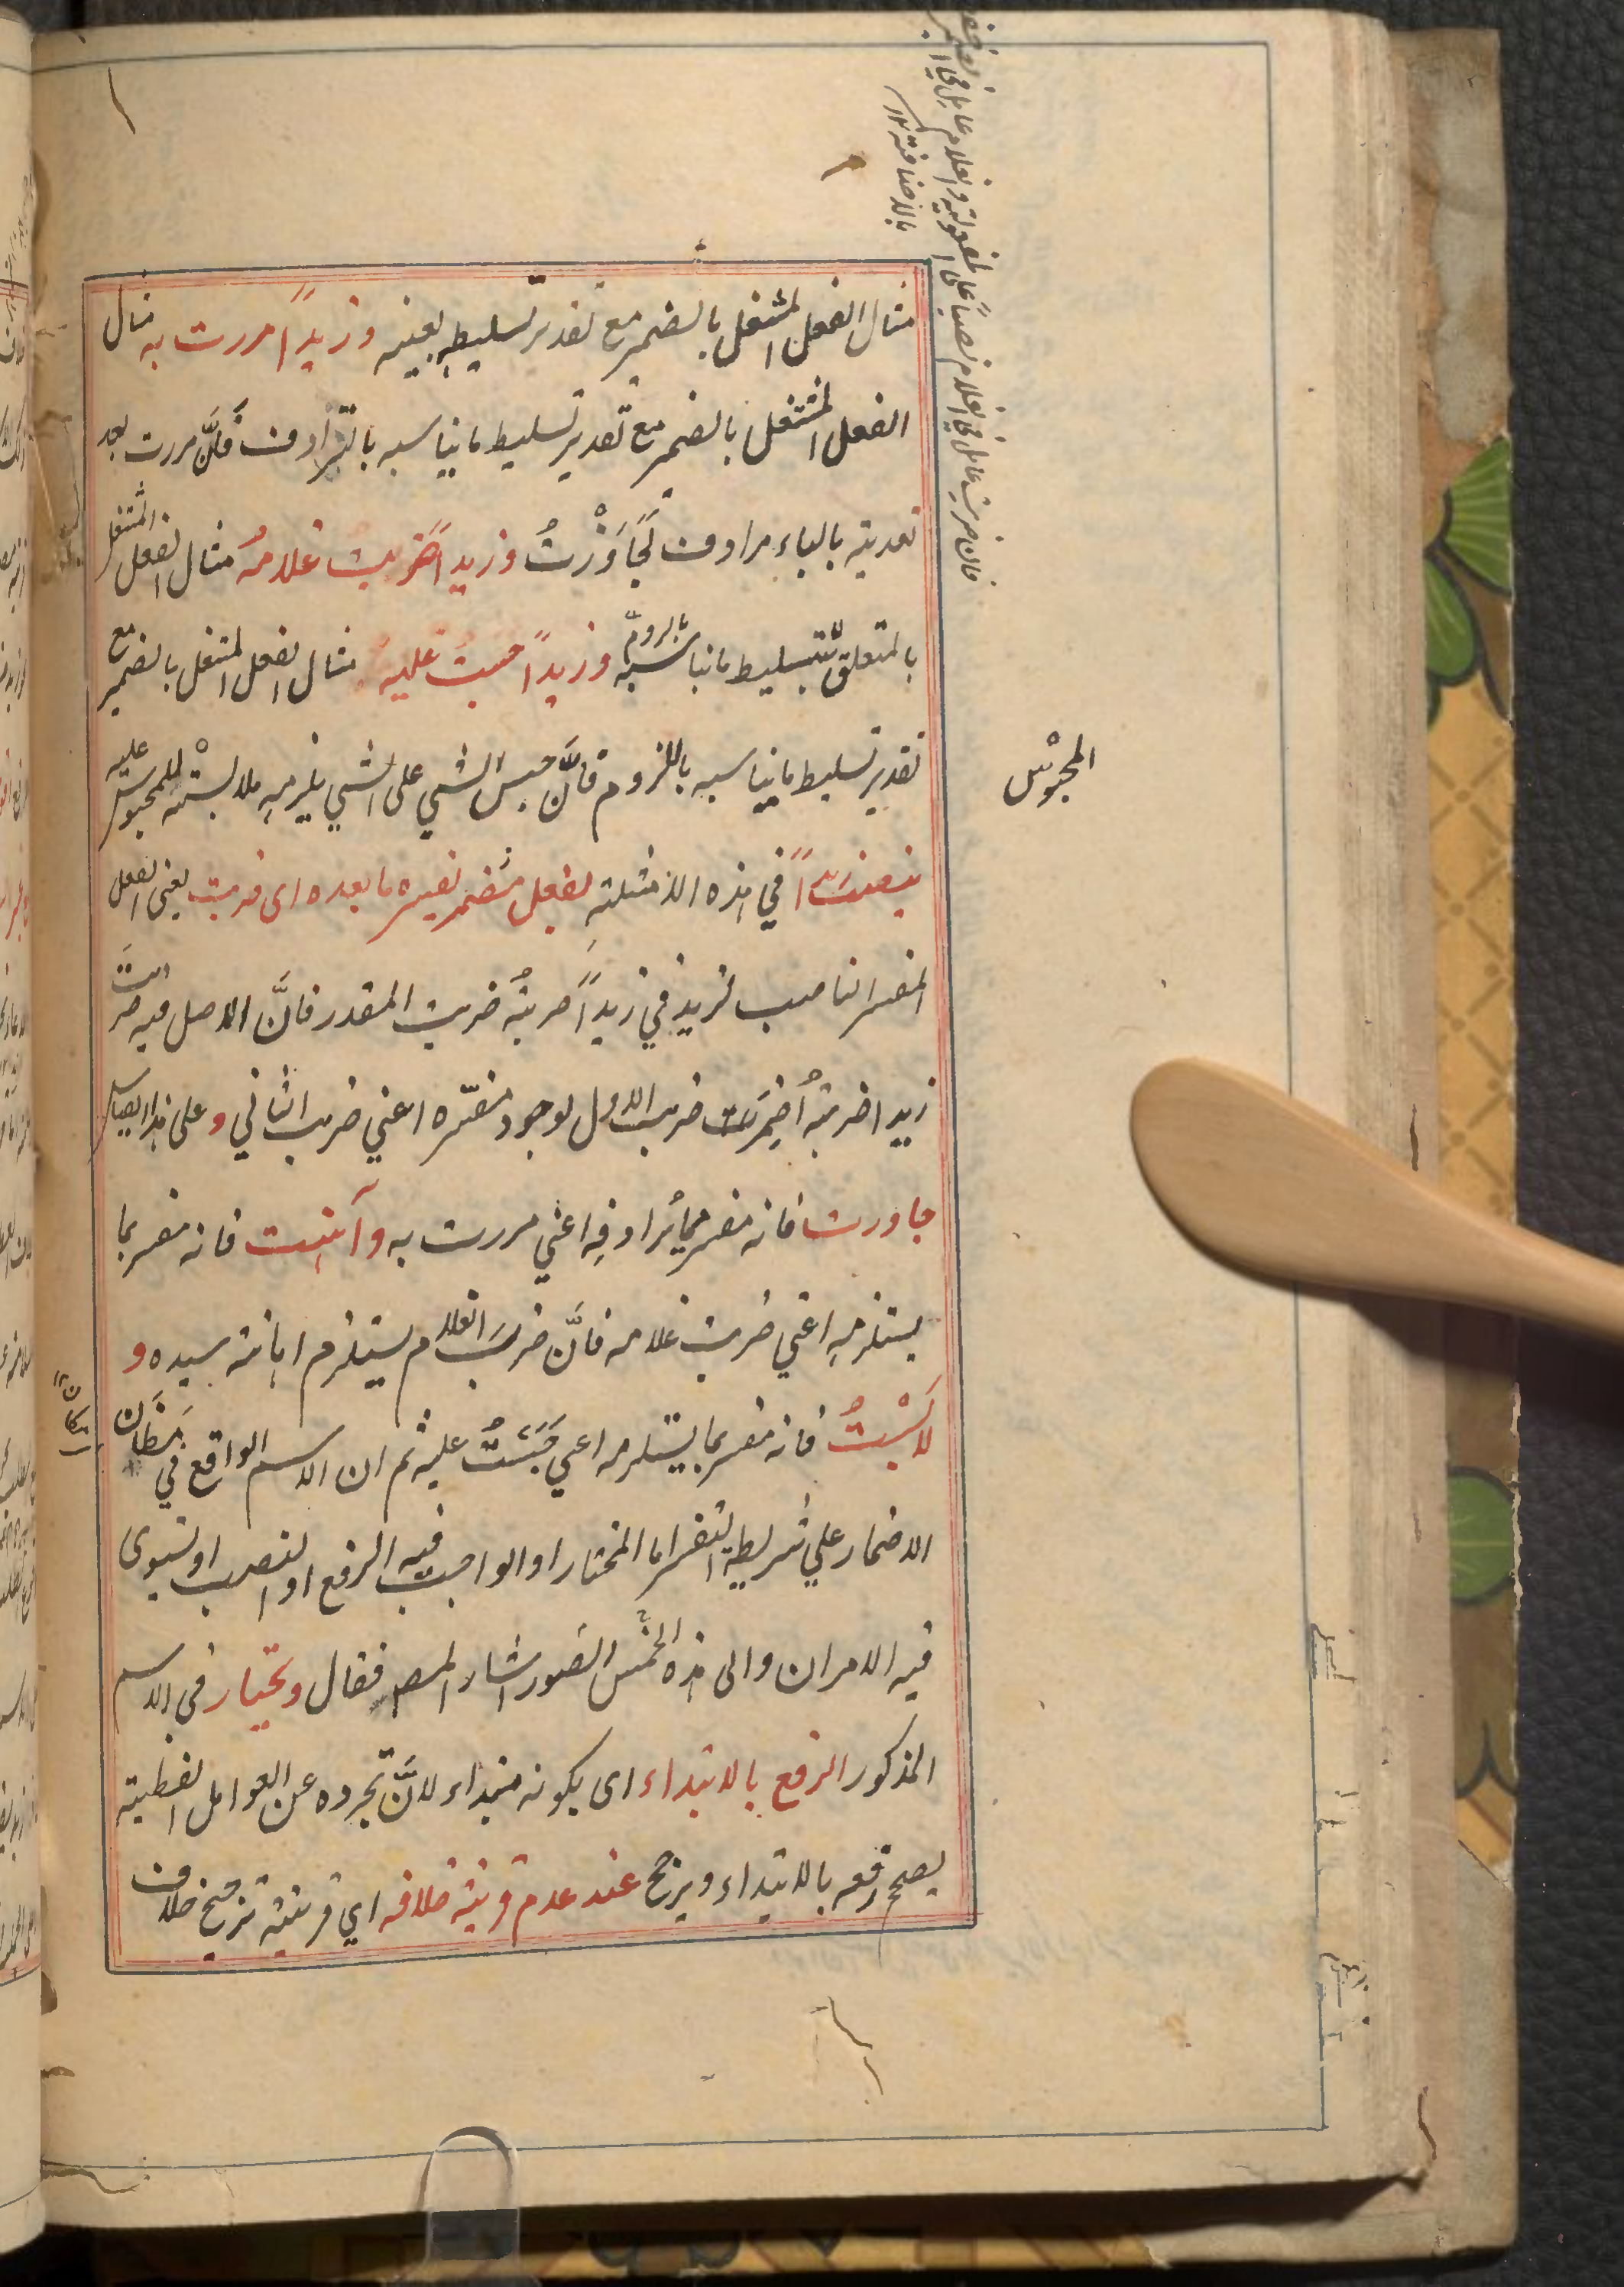 مثال الفعل المشتغل بالضمير مع تقدير تسليطه بعينه وزيداً مررت به مثال
الفعل المشتغل بالضمير مع تقدير تسليط ما يناسبه بالترادف فانّ مررت بعد
تعديته بالباء مرادف لجَاوَزْتُ وزيدا ضربت غلامهُ مثال الفعل المشتغل
بالمتعلق بتسليط ما يناسبه باللزوم وزيداً حبست عليهِ مثال الفعل المشتغل بالضمير مع
تقدير تسليط ما يناسبه باللزوم فانَّ حبس الشي على الشي يلزمهِ ملابسْته للمحبوس عليه
ينصب زيداً في هذه الامثلة بفعل مضمر يفسره ما بعده اى ضربت يعنى الفعل
المفسر الناصب لزيد في زيداً ضربتهُ ضربت المقدر فانَّ الاصل فيه ضربتَ
زيدا ضربتهُ أضمِرَت ضربت الاول لوجود مفسّره اعني ضربت الثاني و على هذا القياس
جاوزت فانه مفسر بما يُرادفِه اعني مررت به وآهنت فانه مفسر بما
يستلزمهِ اعني ضربت غلامه فانَّ ضربَ الغلام يستلزم اهانة سيده و
لابَسْتُ فانه مفسر بما يستلزمه اعني حَبَسْتُ عليه ثم ان الاسم الواقع في مَظَانّ
الاضمار علي شريطة التفسير اما المختار او الواجب فيه الرفع او النصب او يستوى
فيه الامران والى هذه الخمس الصور اشار المصـ فقال ويختار في الاسم
المذكور الرفع بالابتداء اى بكونه مبتداء لانَّ تجرده عن العوامل اللفظية
يصحح رفعه بالابتداء ويرجح عند عدم قرينة خلافه اي قرينة ترجح خلاف
المحبوْس
مكان
فان ضربت عامل في الغلام نصبًا على المفعولية والغلام عامل في
بالاضافة ١٢